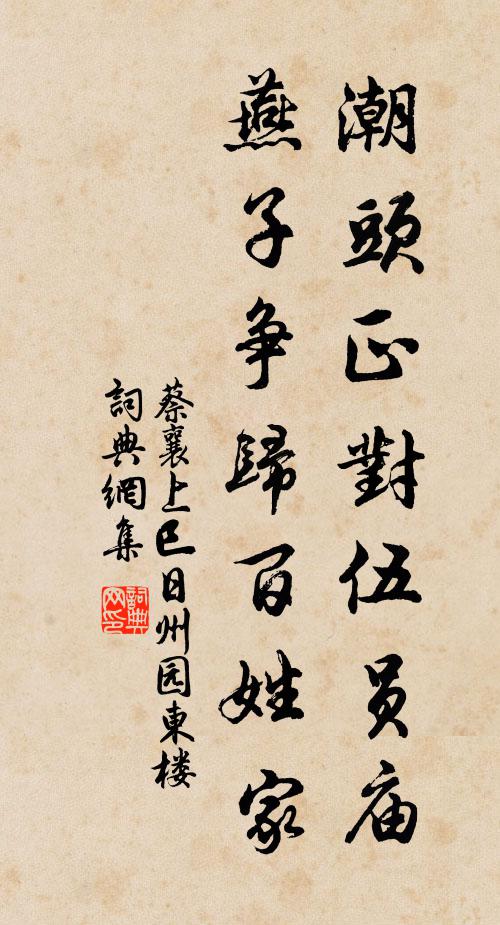 潮頭正對伍员庙
燕子争歸百姓家
蔡襄上巳日州园東楼
詞典網集
詞典网印